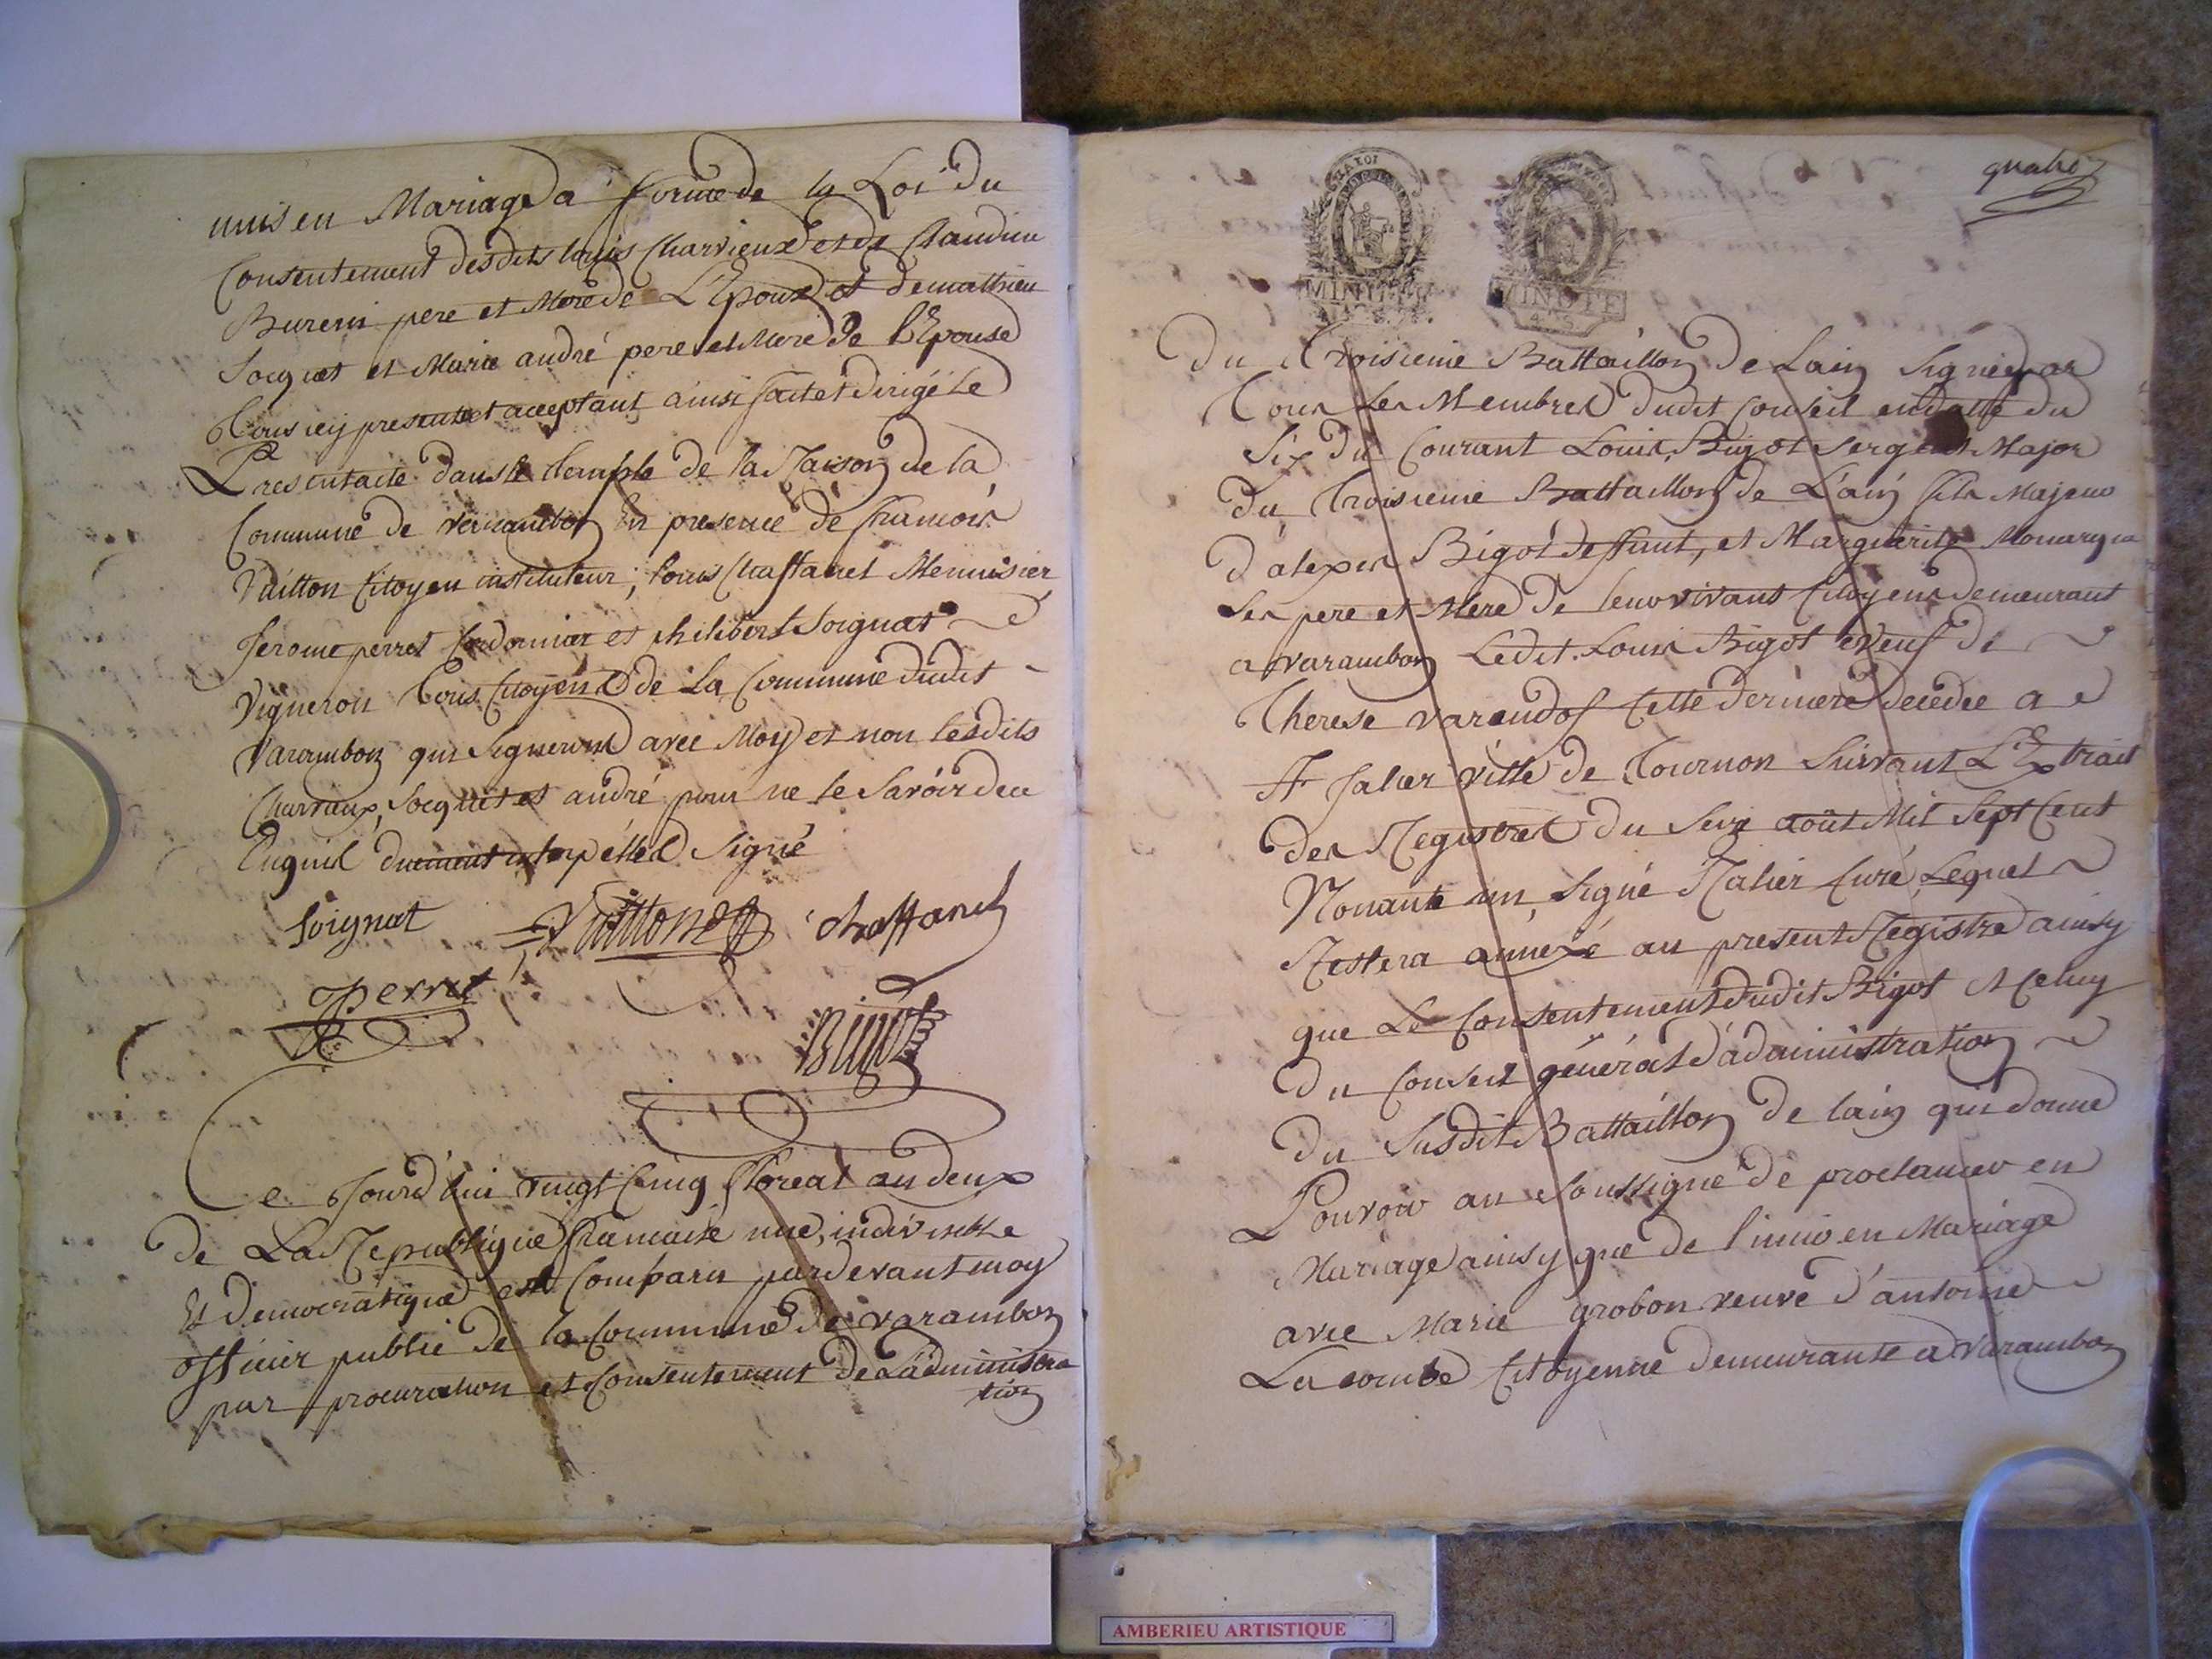 unis en Mariage a forme de la Loi du
Consentement desdits louis Charvieux et de Claudine
Burevin pere et Mere de L'Epoux et de mathieu
Socquet et Marie andré pere et Mere de l'Epouse
Tous icy present et acceptant ainsi fait et dirigé le
Present acte dans le Temple de la Raison de la
Commune de Varambon En presence de francois
Vuitton Citoyen instituteur, louis Chaffanel Menuisier
Jerome perret Cordonnier et philibert Soignat
Vigneron Tous Citoyens de La Commune dudit
Varambon qui Signeront avec Moy et non lesdits
Charvieux, Socquet et andré pour ne le Savoir de ce
Enquis duement interpellés Signé
Soignat Vuitton chaffanel
J perret
Bigot
Ce Jourd'hui vingt Cinq floreal an deux
de La Republique francaise une, indivisible
Et Democratique est Comparu pardevant moy
officier public de la Commune de varambon
par procuration et Consentement de L'administra
tion
quatre
LA LOI
MINUTE
MINUTE
Du Troisieme Battaillon De Lain Signé par
Tous Les Membres dudit Conseil en datte du
Six du Courant Louis Bigot Sergent Major
Du Troisieme Battaillon de L'ain fils Majeur
D'alexis Bigot deffunt, et Marguerite
Ses pere et Mere De leur vivant Citoyens demeurant
a varambon Ledit Louis Bigot Veuf de
Therese Cette Derniere decedée a
ville de Tournon Suivant L'Extrait
des Registres du Seize août Mil Sept Cent
Nonante un, Signé Curé Lequel
Restera annexé au present Registre ainsy
que Le Consentement dudit Bigot & Celuy
du Conseil général d'administration
du Susdit Battaillon de lain qui donne
Pouvoir au Soussigné de proclamer en
Mariage ainsy que de l'unir en Mariage
avec Marie grobon veuve d'antoine
Lacombe Citoyenne demeurante a Varambon
AMBERIEU ARTISTIQUE